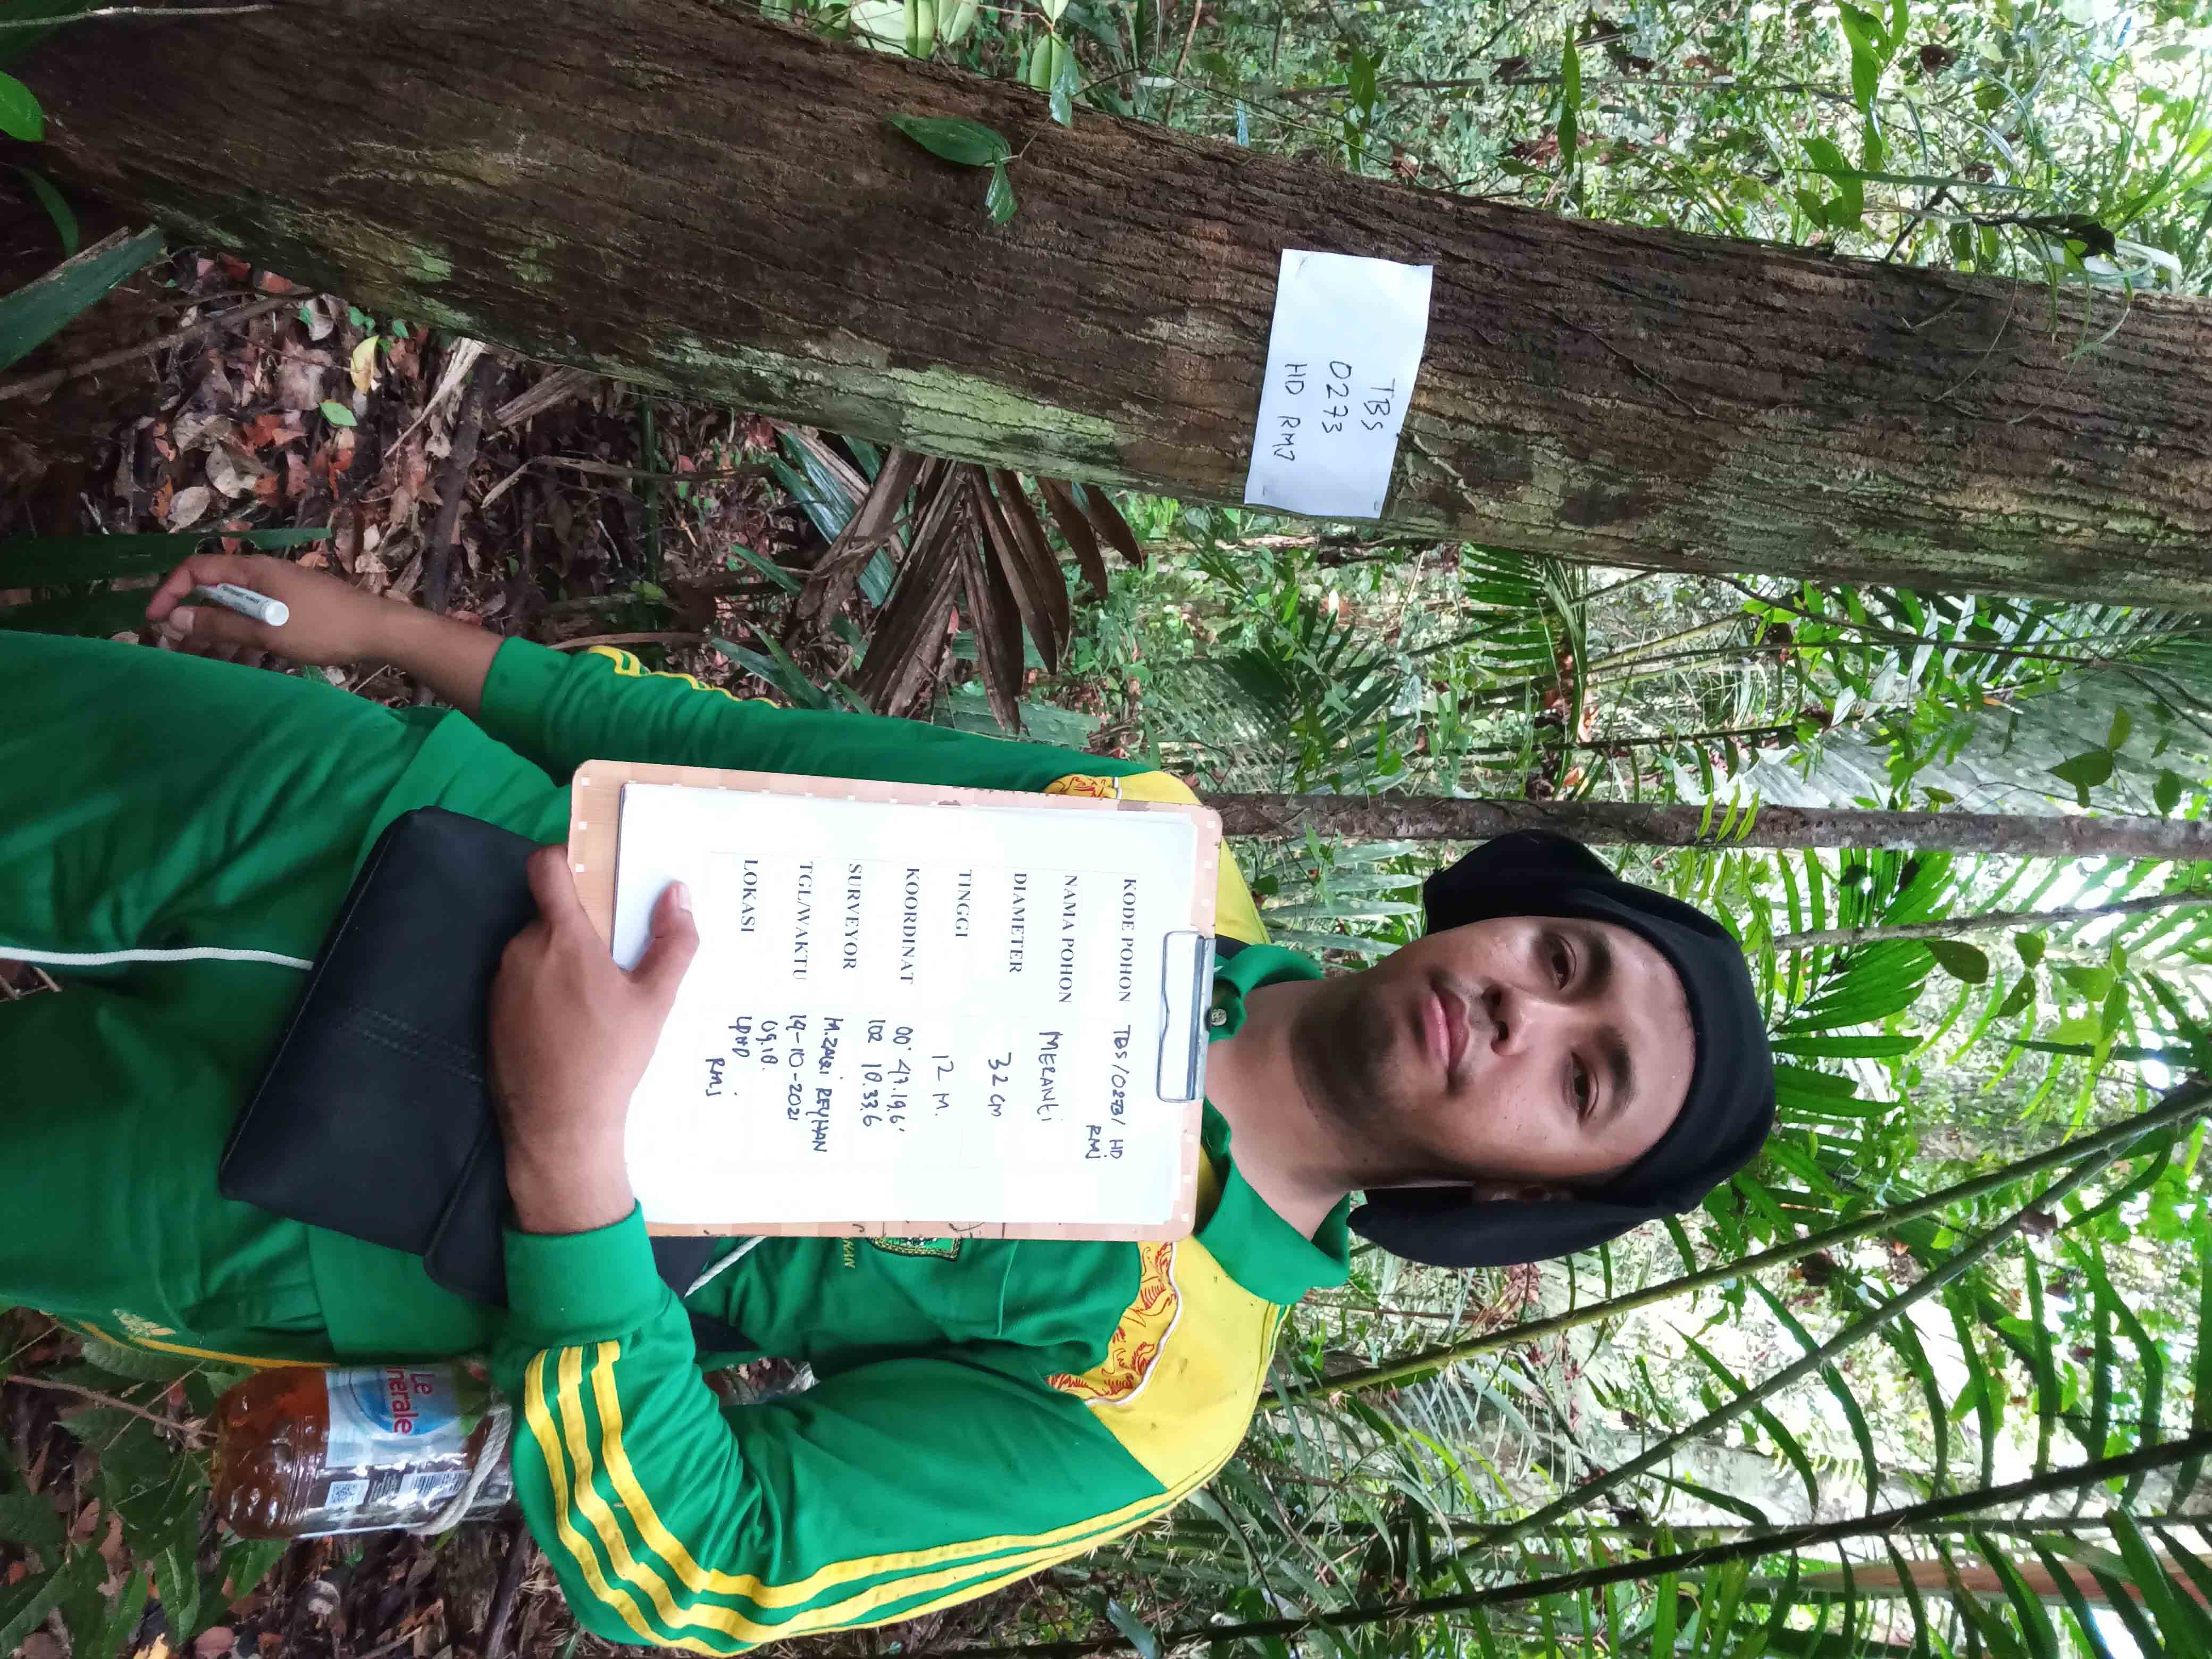 TBS
0273
HD RMJ
KODE POHON TBS/0273/ HD
RMJ
NAMA POHON MERANTI
DIAMETER 32 CM
TINGGI 12 M.
KOORDINAT 00° 47.19.6'
102 10.33.6
SURVEYOR M.ZAQRI REYHAN
TGL/WAKTU 19-10-2021
09.10.
LOKASI LPHD
RMJ
Le
inerale